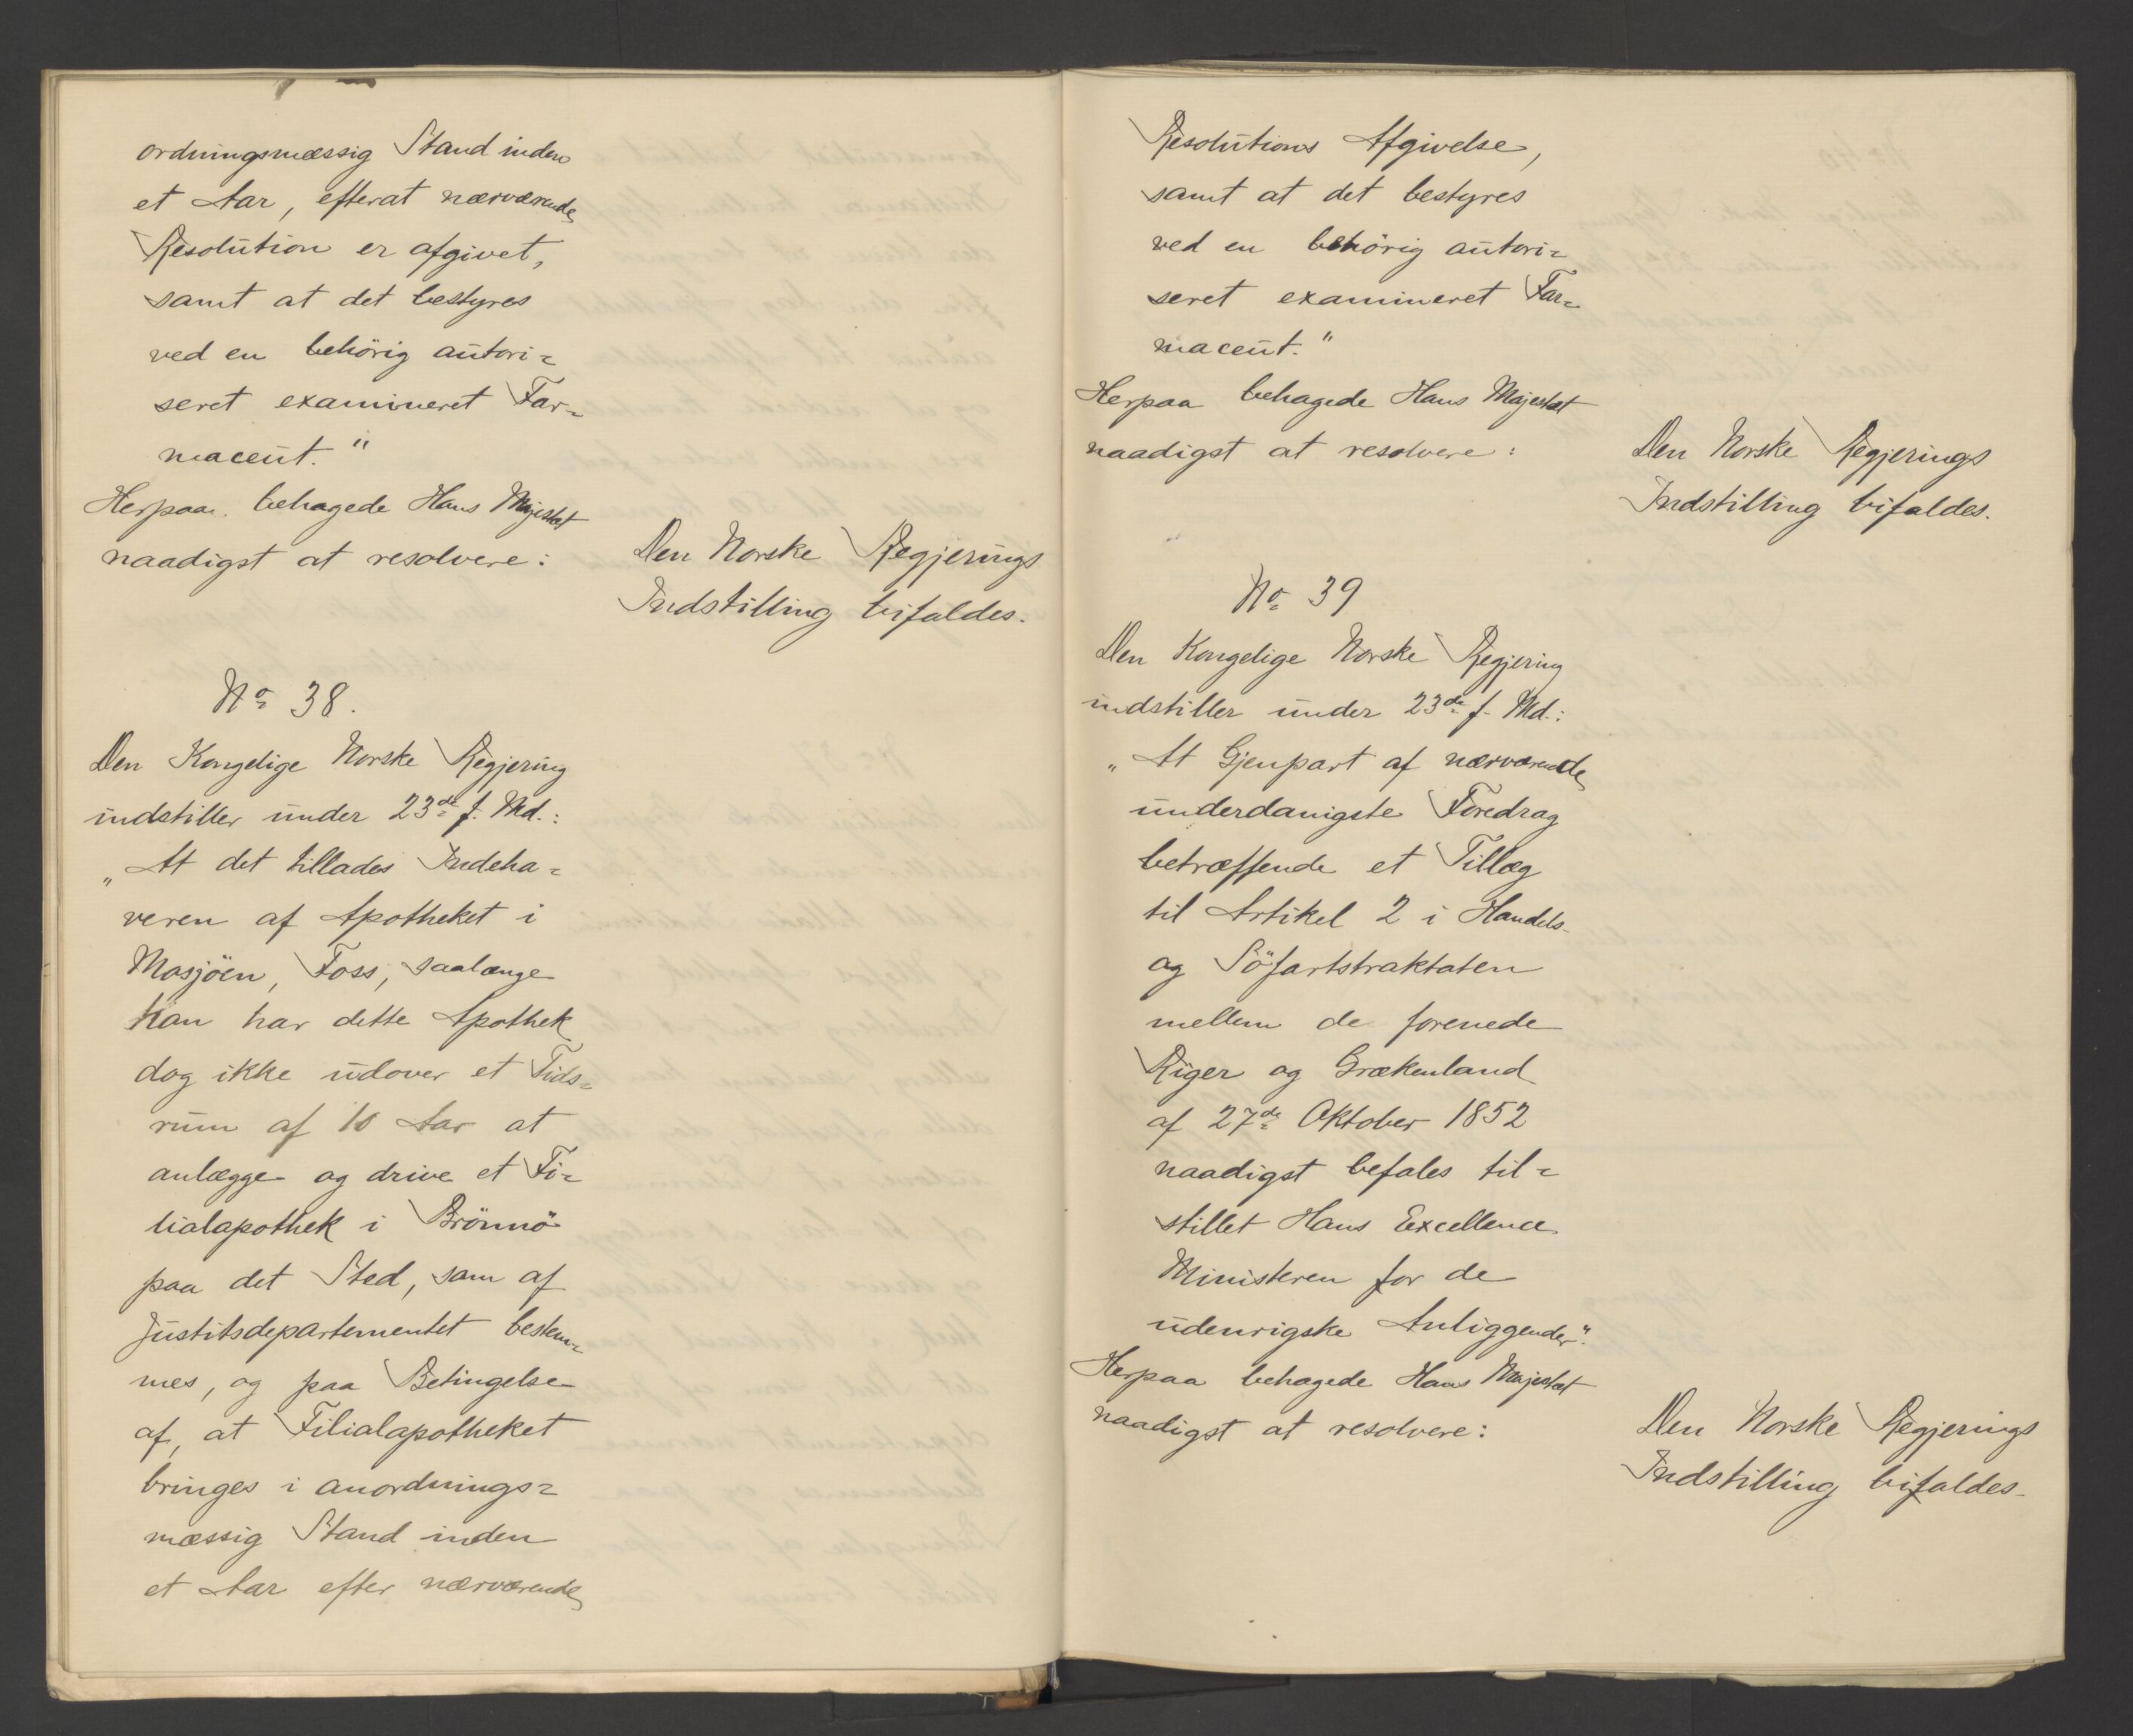 ordningsmæssig Stand inden
et Aar, efterat nærværende
Resolution er afgivet,
samt at det bestyres
ved en behörig autori=
seret examineret Far=
maceut."
Herpaa behagede Hans Majestæt
naadigst at resolvere:
Den Norske Regjerings
Indstilling bifaldes.
No 38.
Den Kongelige Norske Regjering
indstiller under 23de f. Md.:
"At det tillades Indeha=
veren af Apotheket i
Mosjöen, Foss, saalænge
han har dette Apothek
dog ikke udover et Tids=
rum af 10 Aar at
anlægge og drive et Fi=
lialapothek i Brönnö
paa det Sted, som af
Justitsdepartementet bestem=
mes, og paa Betingelse
af, at Filialapotheket
bringes i anordnings=
mæssig Stand inden
et Aar efter nærværende
Resolutions Afgivelse,
samt at det bestyres
ved en behörig autori=
seret examineret Far=
maceut."
Herpaa behagede Hans Majestæt
naadigst at resolvere:
Den Norske Regjerings
Indstilling bifaldes.
No 39
Den Kongelige Norske Regjering
indstiller under 23de f. Md.:
"At Gjenpart af nærværende
underdanigste Foredrag
betræffende et Tillæg
til Artikel 2 i Handels-
og Söfartstraktaten
mellem de forenede
Riger og Grækenland
af 27de Oktober 1852
naadigst befales til=
stillet Hans Excellence
Ministeren for de
udenrigske Anliggender".
Herpaa behagede Hans Majestæt
naadigst at resolvere:
Den Norske Regjerings
Indstilling bifaldes.